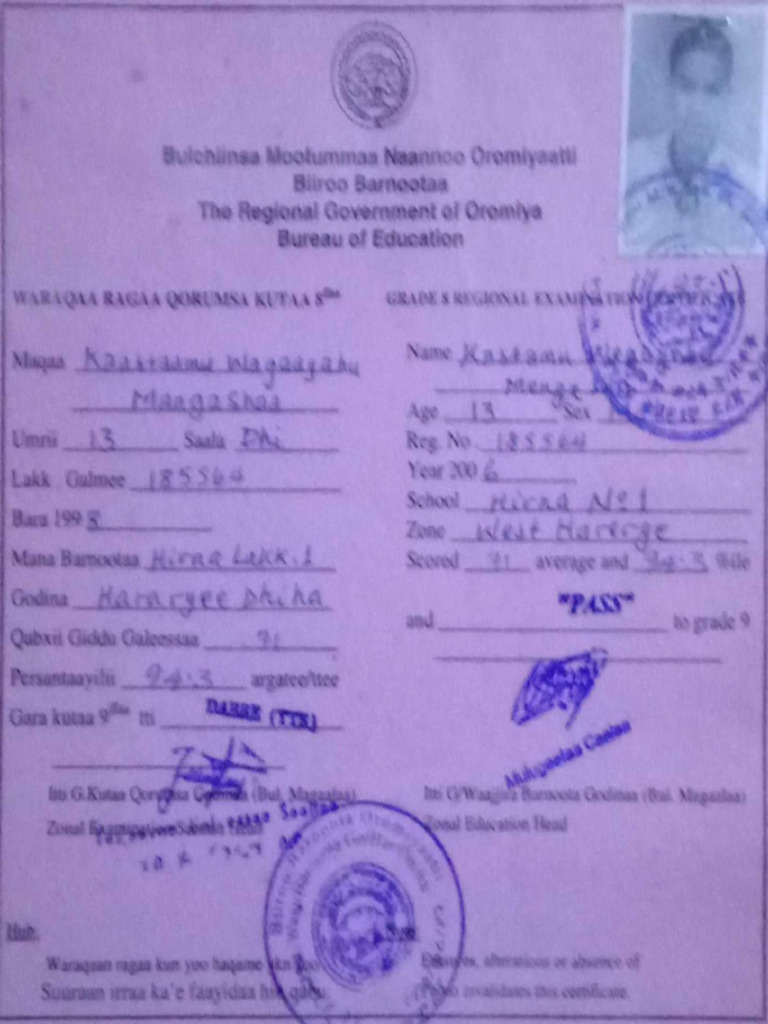 Bulchiinsa Mootummaa Naannoo Oromiyaatti
Biiroo Barnootaa
The Regional Government of Oromiya
Bureau of Education
WARAQAA RAGAA QORUMSA KUTAA 8ffaa
Maqaa Kaastaamu Wagaayahu
Mangashaa
Umrii 13 Saala Dhi
Lakk Galmee 185564
Bara 1998
Mana Barnootaa Hirna Lakk.1
Godina Hararyee Dhiha
Qabxii Giddu Galeessaa 91
Persantaayilii 94.3 argatee/ttee
Gara kutaa 9ffaa tti DABRE (TTE)
Itti G.Kutaa (Bul. Magaalaa)
Zonal Head
GRADE 8 REGIONAL EXAMINATION CERTIFICATE
Name Kastamu
Age 13 Sex
Reg. No. 185564
Year 2006
School Hirna No 1
Zone West Harerge
Scored 91 average and 94.3 %ile
and "PASS" to grade 9
Itti G/Waajjira Barnoota Godinaa (Bul. Magaalaa)
Zonal Education Head
Hub.
Waraqaan ragaa kun yoo haqame
Suuraan irraa ka'e faayidaa hin qabu
alterations or absence of
invalidates this certificate.